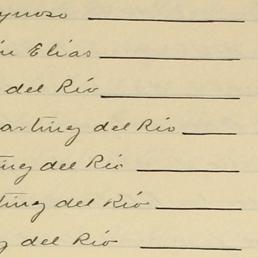 ynoso
n Elias
del Río
artinz del Río
nz del Río
tinz del Río
z del Río